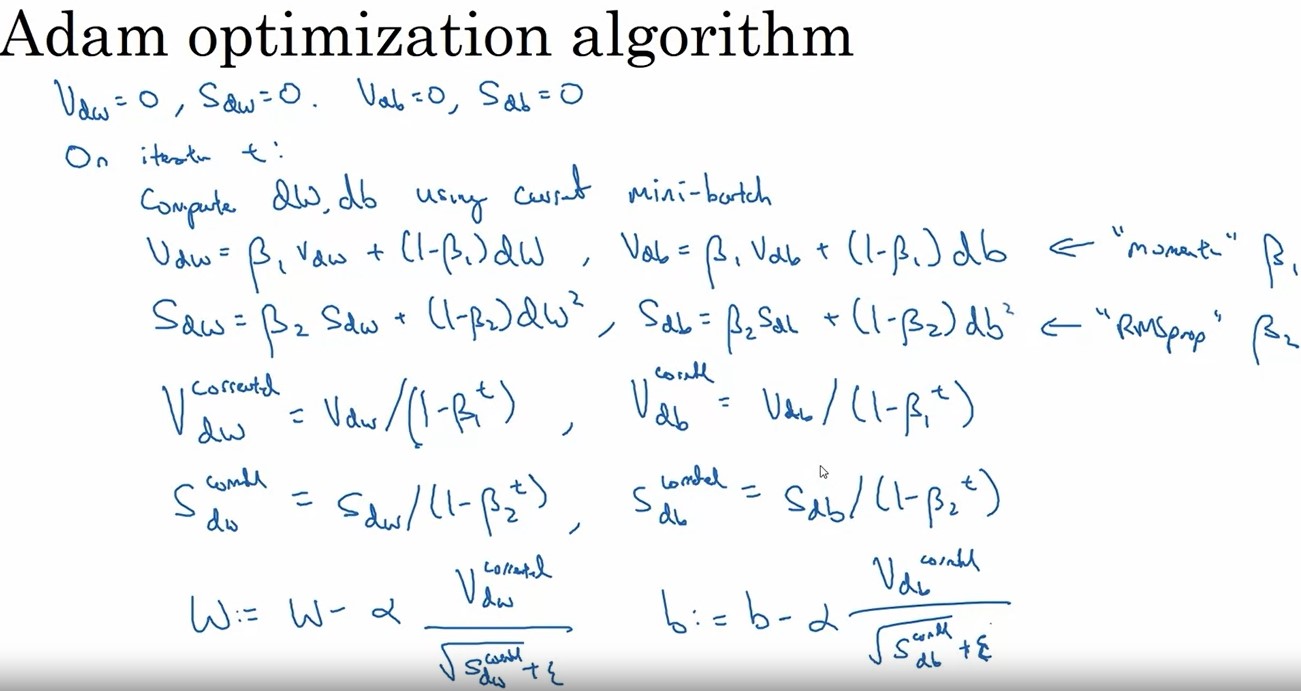 Adam optimization algorithm
V_dw = 0, S_dw = 0. V_db = 0, S_db = 0
On iteratn t:
Compute dW, db using current mini-batch
V_dw = β₁ V_dw + (1-β₁) dW, V_db = β₁ V_db + (1-β₁) db ← "moment" β₁
S_dw = β₂ S_dw + (1-β₂) dW², S_db = β₂ S_db + (1-β₂) db² ← "RMSprop" β₂
V_dw^corrected = V_dw/(1-β₁^t), V_db^corrected = V_db/(1-β₁^t)
S_dw^corrected = S_dw/(1-β₂^t), S_db^corrected = S_db/(1-β₂^t)
W := W - α V_dw^corrected / √S_dw^corrected + ε b := b - α V_db^corrected / √S_db^corrected + ε